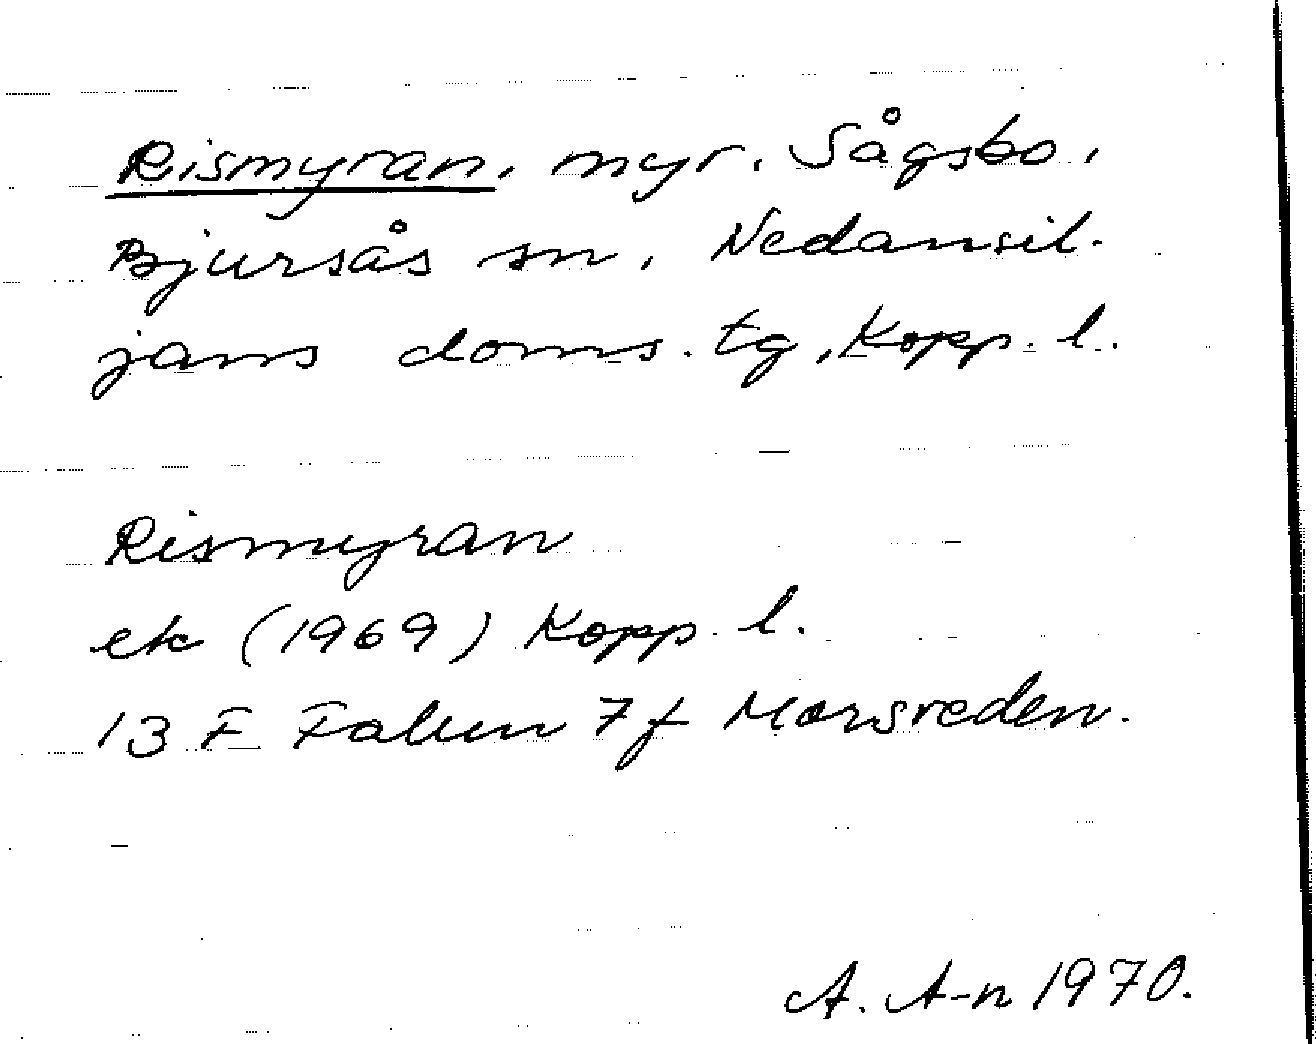 Rismyran, myr. Sågsbo,
Bjursås sn, Nedansil-
jans doms. tg, Kopp. l.
Rismyran
ek (1969) Kopp. l.
13 F Falun 7 f Morsveden.
A. A-n 1970.